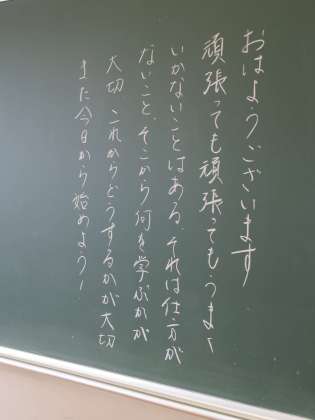 おはようございます
頑張っても頑張ってもうまく
いかないことはある。それは仕方が
ないこと、そこから何を学ぶかが
大切 これからどうするかが大切
また今日から始めよう!